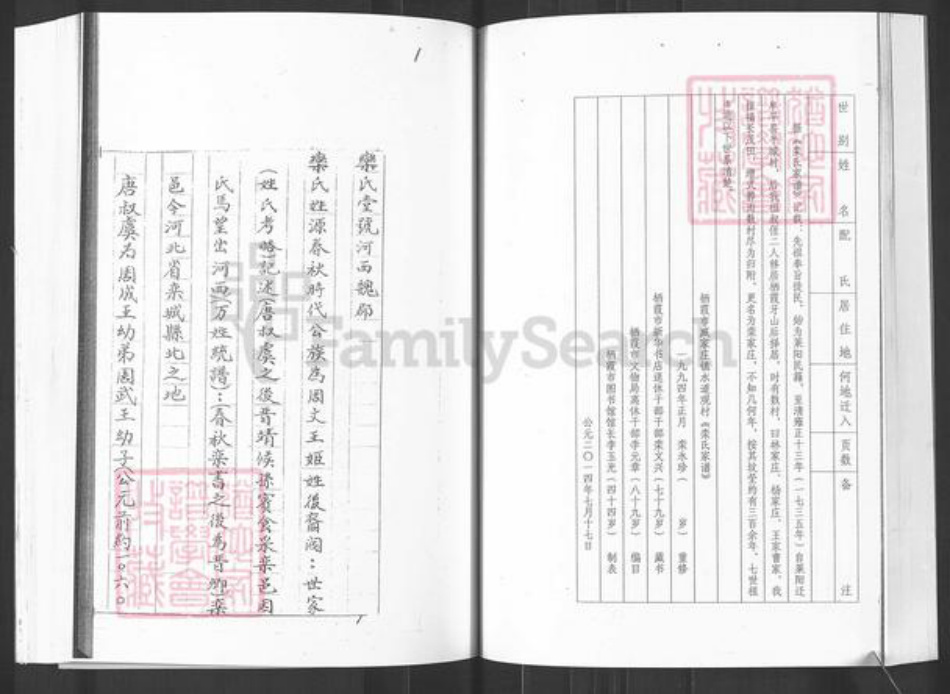 世别 姓名 配氏 居住地 何地迁入 页数 备注
据《栾氏家谱》记载：先祖奉旨徙民，始为莱阳民籍，至清雍正十三年（一七三五年）自莱阳迁
二人移居栖霞牙山后择居，时有数村，曰林家庄、杨家庄、王家曹家，我
数村尽为归附，更名为栾家庄，不知几何年，按其坟茔约有三百余年，七世祖
栖霞市 家庄镇水道观村《栾氏家谱》
一九九四年正月 栾永珍（ 岁） 重修
栖霞市新华书店退休干部栾文兴（七十九岁） 藏书
栖霞市文物局离休干部李元章（八十九岁） 编目
栖霞市图书馆馆长李玉光（四十四岁） 制表
公元二〇一四年七月十七日
1
栾氏堂號河西魏郡
栾氏姓源春秋時代公族為周文王姬姓後裔阅：世家
（姓氏考略）記述（唐叔虞之後晋靖候孫賓食采栾邑因
氏馬望出河西（万姓統譜）：（春秋栾書之後為晋卿栾
邑今河北省栾城縣北之地
唐叔虞为周成王幼弟周武王幼子（公元前約一〇六〇
FamilySearch